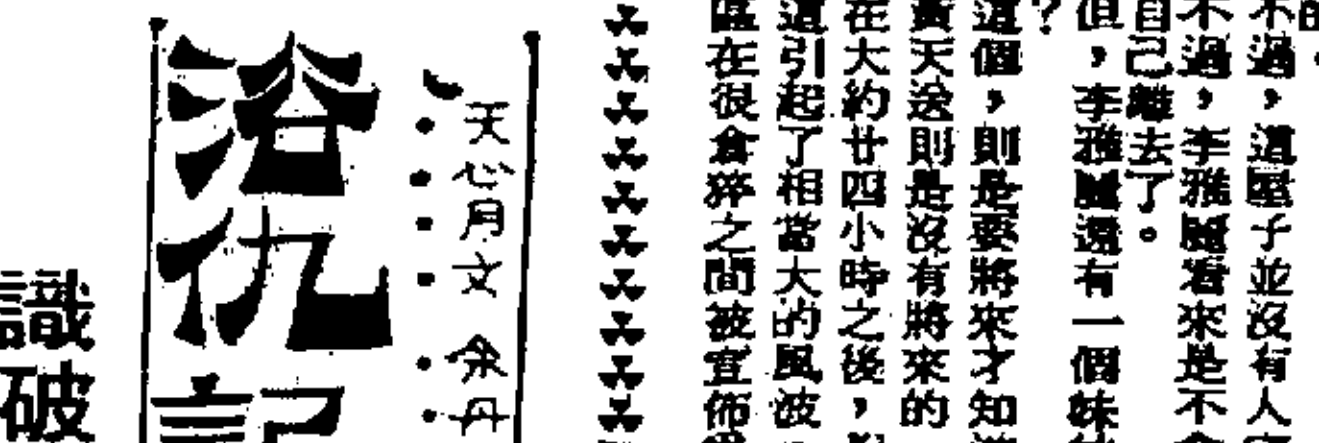 的。
不過,這屋子並沒有人
不過,李雅麗看來是不會
自己離去了。
但,李雅麗還有一個妹
?
這個,則是要將來才知道
黃天送則是沒有將來的
在大約廿四小時之後,
這引起了相當大的風波
區在很倉猝之間被宣佈
浴仇記
天心月文
余丹
識破